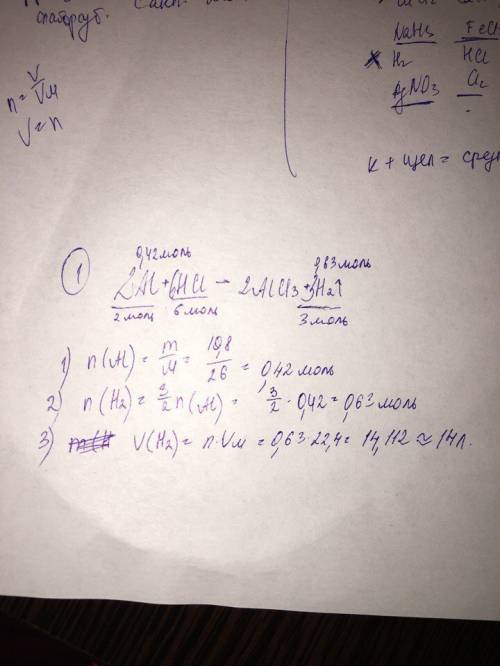 n = V/Vм
V = n
NaHS FeCl
H₂ HCl
AgNO₃ Cl₂
К + щел = сред
1
0,42 моль 0,63 моль
2Al + 6HCl – 2AlCl₃ + 3H₂↑
2 моль 6 моль 3 моль
1) n(Al) = m/M = 10,8/26 = 0,42 моль
2) n(H₂) = 3/2 n(Al) = 3/2 · 0,42 = 0,63 моль
3) V(H₂) = n·Vм = 0,63·22,4 = 14,112 ≈ 14л.